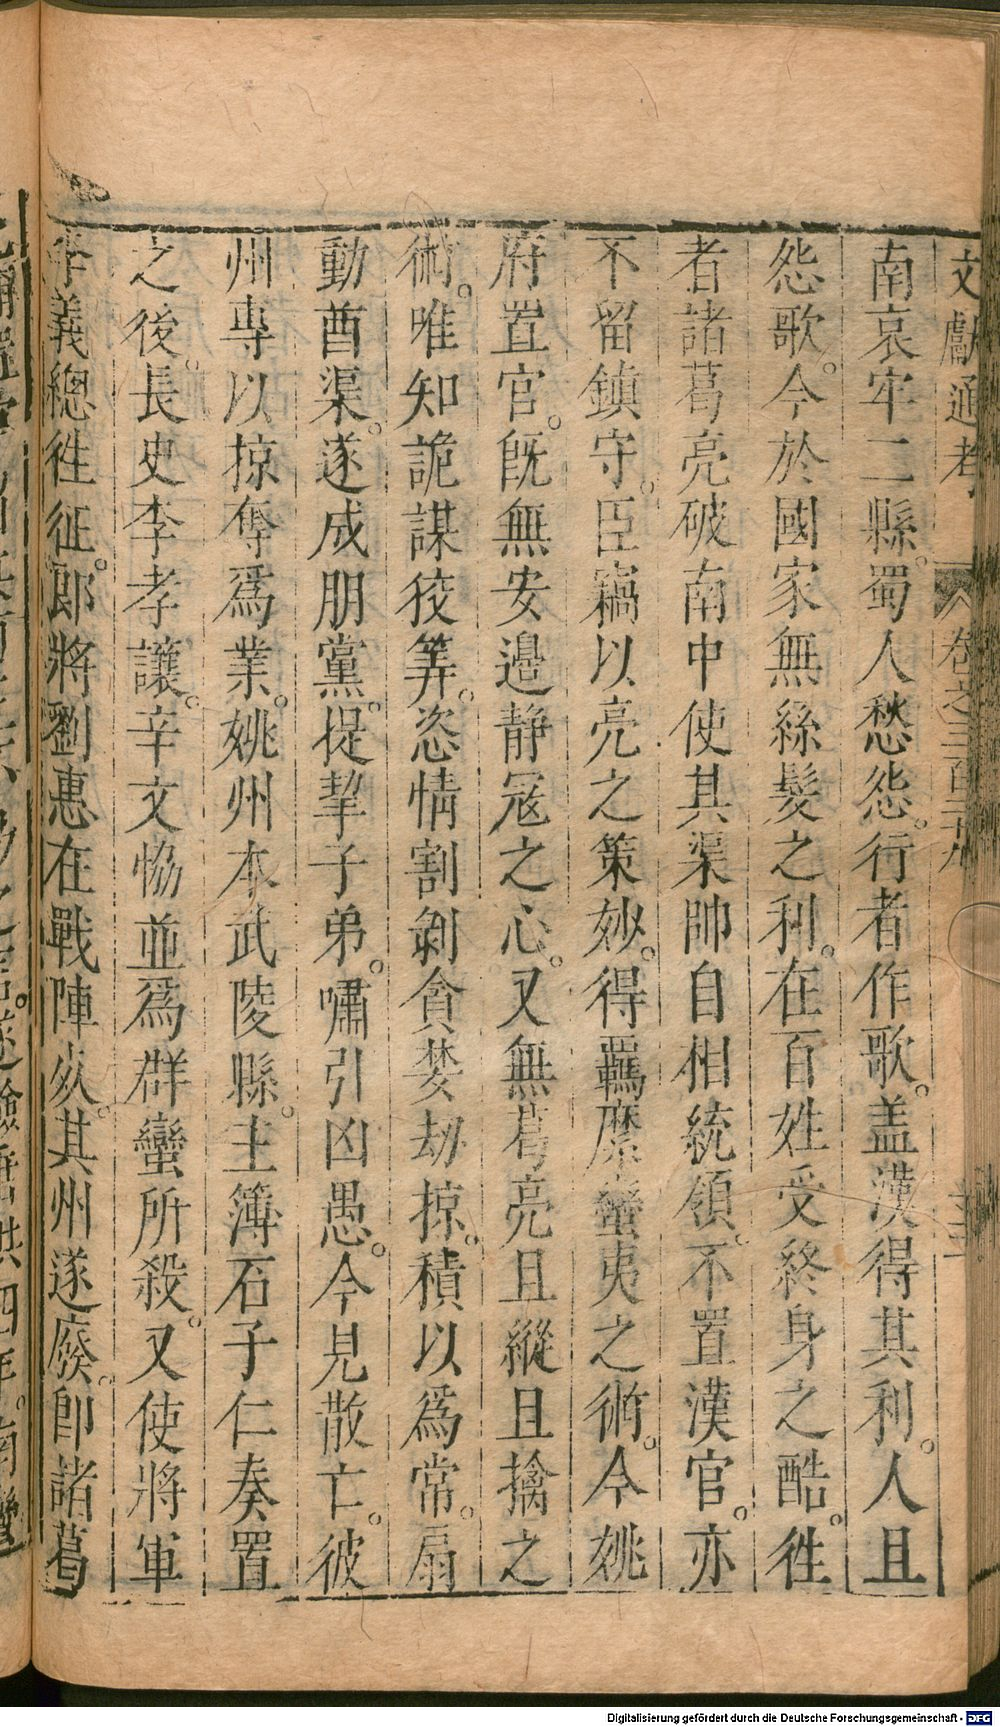 文獻通考 卷之三百二十九
南哀牢二縣。蜀人愁怨。行者作歌。盖漢得其利。人且
怨歌。今於國家無絲髮之利。在百姓受終身之酷。徃
者諸葛亮破南中使其渠帥自相統領。不置漢官。亦
不留鎮守。臣竊以亮之策妙。得羈縻蠻夷之術。今姚
府置官。旣無安邉静冦之心。又無葛亮且縱且擒之
術。唯知詭謀狡筭。恣情割剝貪婪劫掠。積以爲常。扇
動酋渠。遂成朋黨。提挈子弟。嘯引凶愚。今見散亡。彼
州專以掠奪爲業。姚州本武陵縣。主簿石子仁奏置
之後。長史李孝讓。辛文恊並爲群蠻所殺。又使將軍
李義總徃征。郎將劉惠在戰陣㱥。其州遂廢。卽諸葛
Digitalisierung gefördert durch die Deutsche Forschungsgemeinschaft - DFG